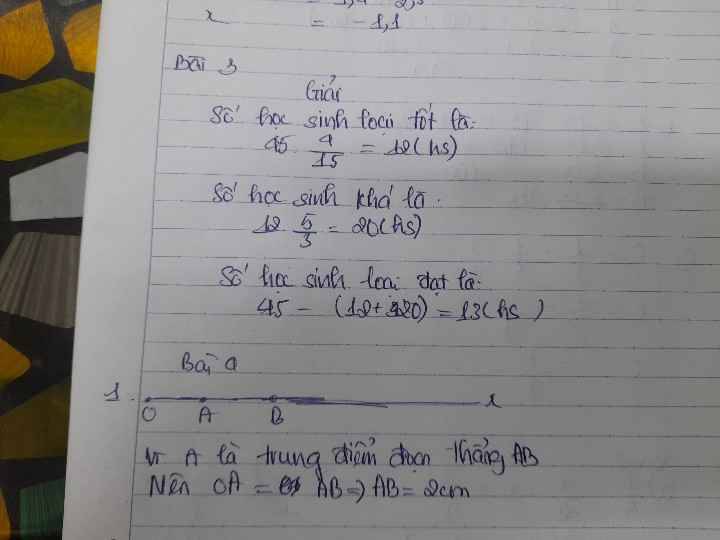 x = -1,1
Bài 3
Giải
Số học sinh loại tốt là:
45. 4/15 = 12(hs)
Số học sinh khá là.
12 5/3 = 20(hs)
Số học sinh loại đạt là:
45 - (12+20) = 13(hs)
Bài 4
1. O A B x
Vì A là trung điểm đoạn thẳng AB
Nên OA = AB => AB = 2cm